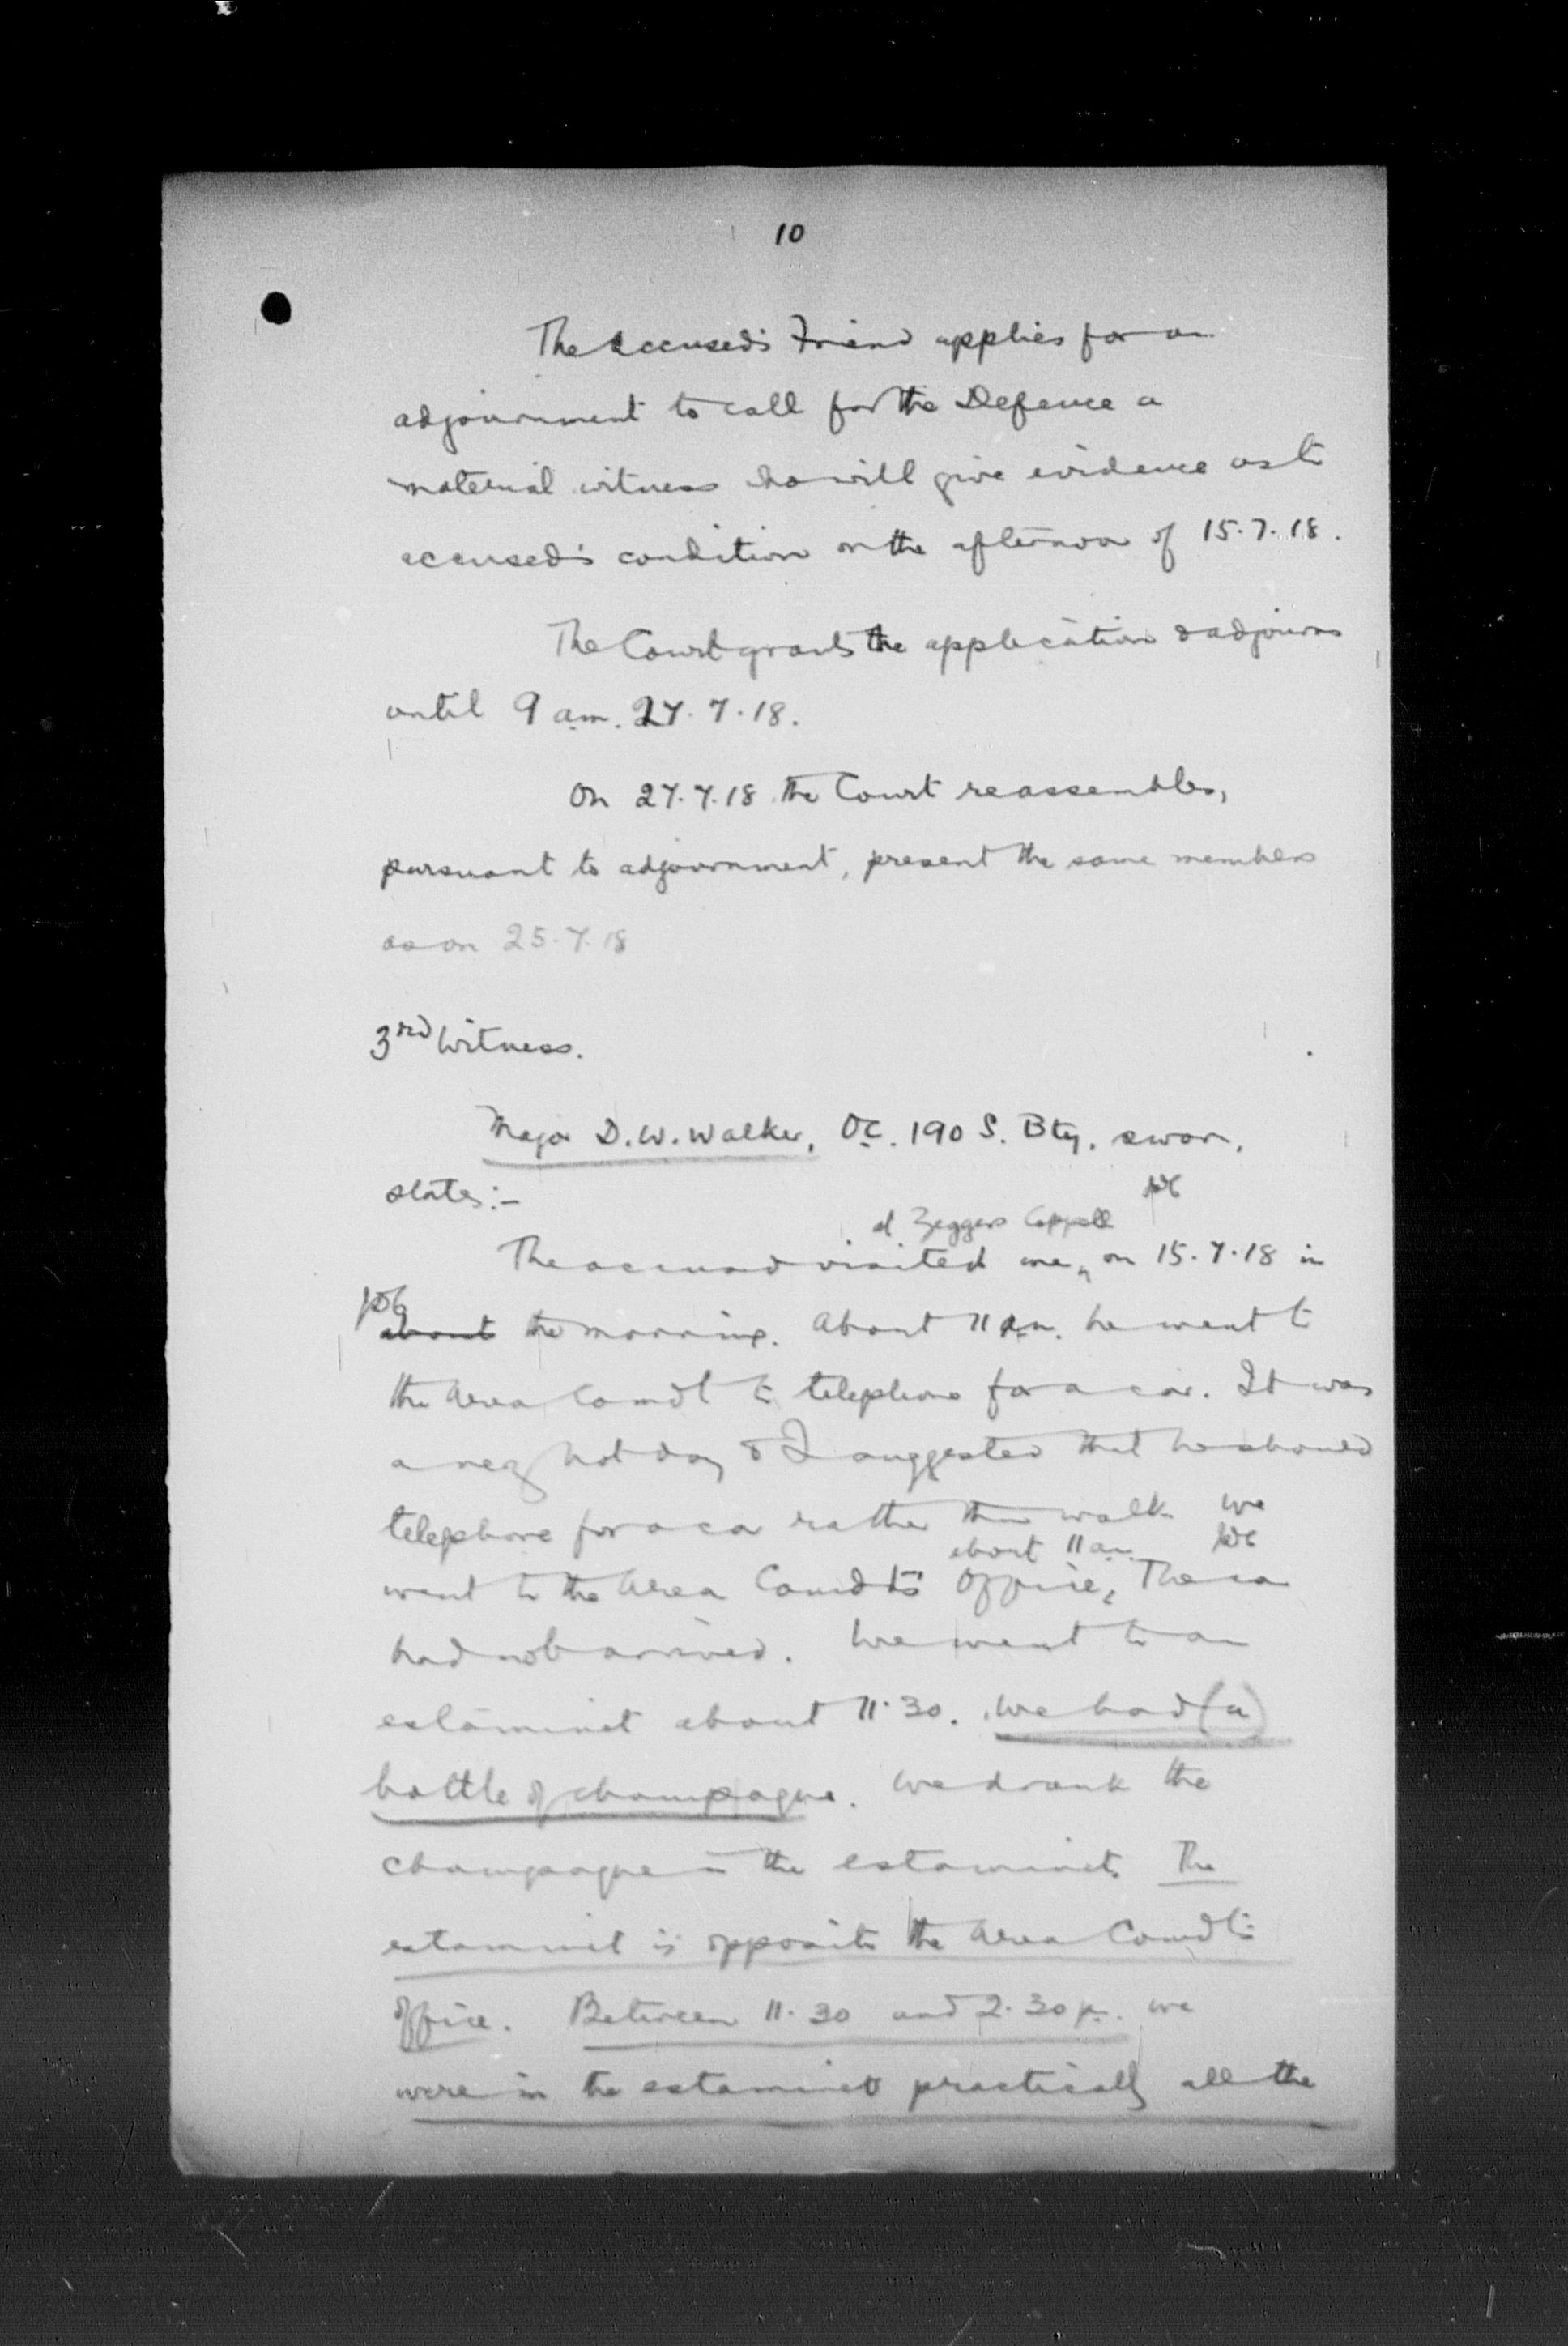 10
The Accused's Friend applies for an
adjournment to call for the Defence a
material witness who will give evidence as to
accused's condition on the afternoon of 15.7.18.
The Court grants the application & adjourns
until 9 am. 27.7.18.
On 27.7.18 the Court reassembles,
pursuant to adjournment, present the same members
as on 25.7.18
3rd Witness.
Major D.W. Walker, OC. 190 S. Bty. sworn,
states:-
at Zeggers Cappell
The accused visited me, on 15.7.18 in
about the morning. About 11 am. he went to
the Area Comdt to telephone for a car. It was
a very hot day & I suggested that he should
telephone for a car rather than walk. We
about 11 am
went to the Area Comdt's Office, The car
had not arrived. We went to an
estaminet about 11.30. We had (a)
bottle of champagne. We drank the
champagne in the estaminet. The
estaminet is opposite the Area Comdt's
office. Between 11.30 and 2.30 p.m. we
were in the estaminet practically all the